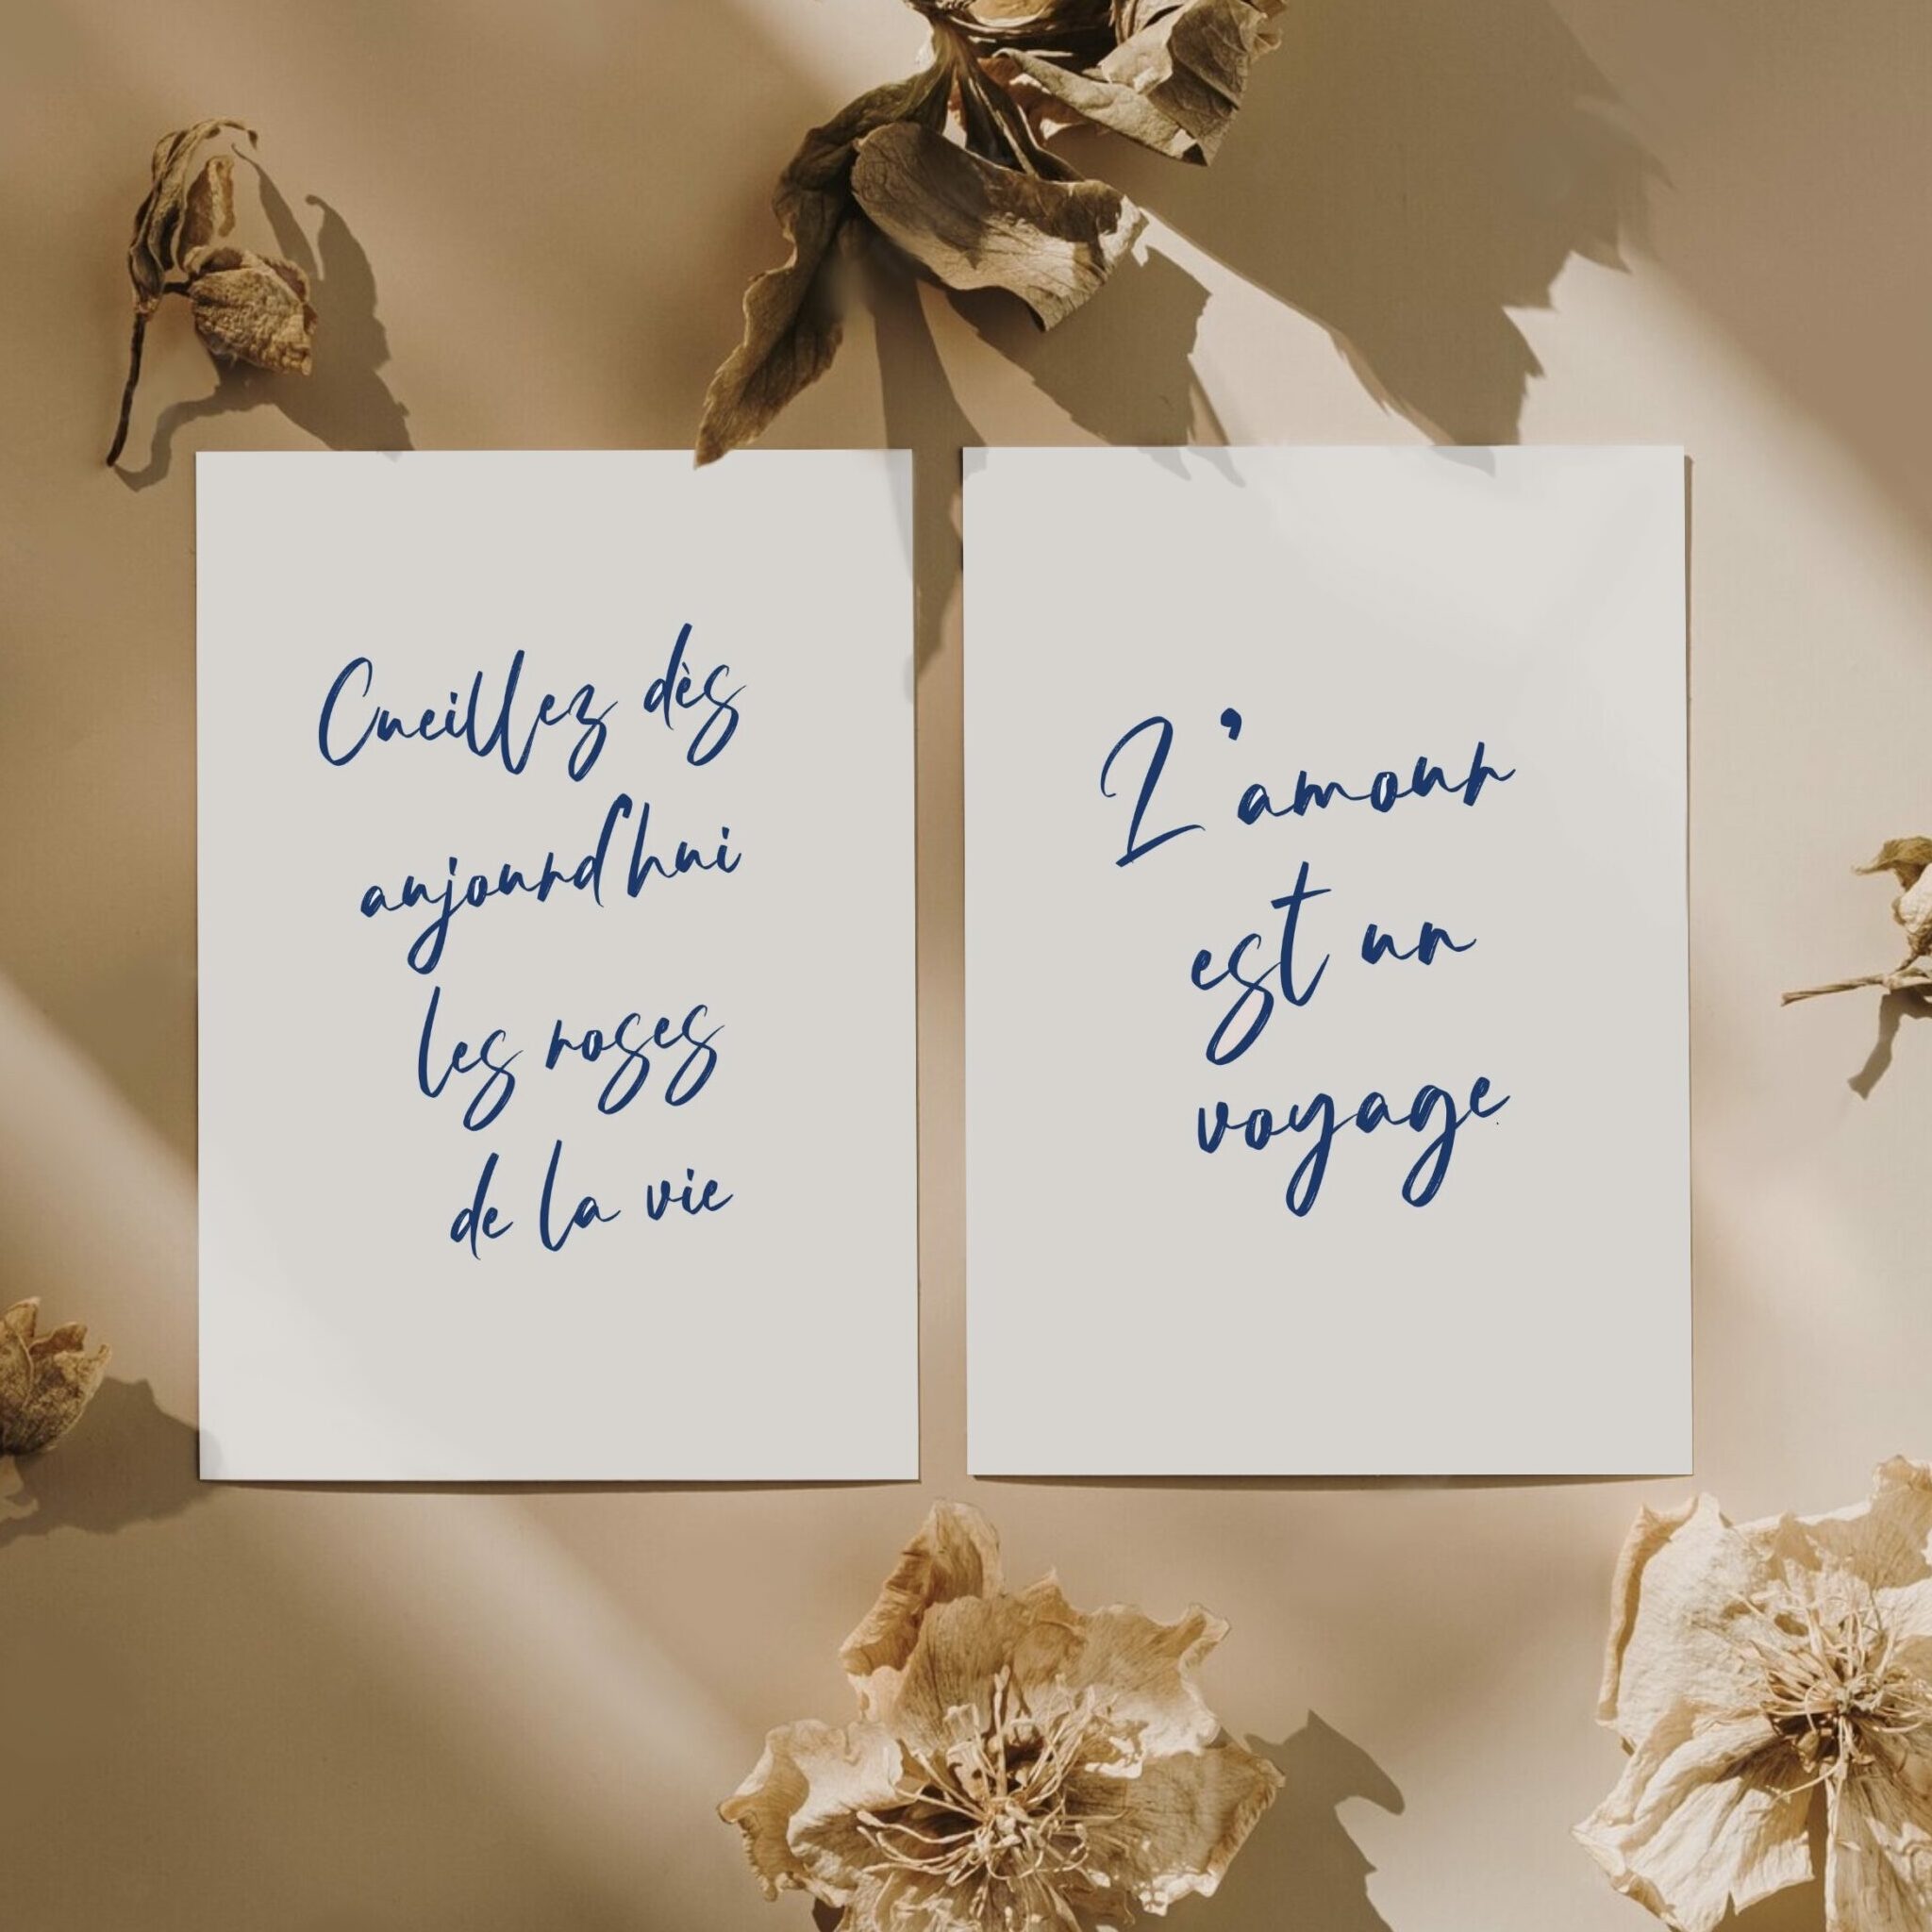 Cueillez dès
aujourd'hui
les roses
de la vie
L'amour
est un
voyage